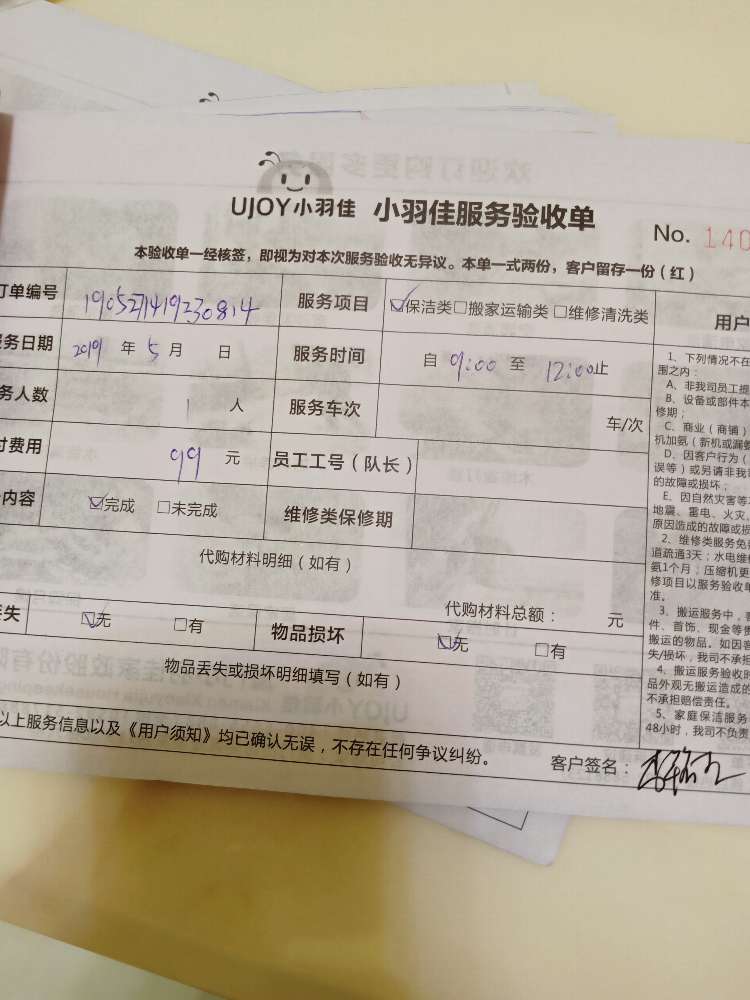 UJOY小羽佳 小羽佳服务验收单
No. 140
本验收单一经核签，即视为对本次服务验收无异议。本单一式两份，客户留存一份（红）
订单编号 190527419230814 服务项目 ☑保洁类□搬家运输类 □维修清洗类
务日期 2019 年 5 月 日 服务时间 自 9:00 至 12:00止
务人数 1 人 服务车次 车/次
付费用 99 元 员工工号（队长）
内容 ☑完成 □未完成 维修类保修期
代购材料明细（如有）
代购材料总额： 元
丢失 ☑无 □有 物品损坏 ☑无 □有
物品丢失或损坏明细填写（如有）
以上服务信息以及《用户须知》均已确认无误，不存在任何争议纠纷。
客户签名：
用户
1、下列情况不在
围之内：
A、非我司员工提
B、设备或部件本
修期；
C、商业（商铺）
机加氨（新机或漏氨
D、因客户行为（
误等）或另请非我司
的故障或损坏；
E、因自然灾害等
地震、雷电、火灾、
原因造成的故障或损
2、维修类服务免
道疏通3天；水电维修
氨1个月；压缩机更
修项目以服务验收单
准。
3、搬运服务中，
件、首饰、现金等贵
搬运的物品。如因客
失/损坏，我司不承担
4、搬运服务验收时
品外观无搬运造成的
不承担赔偿责任。
5、家庭保洁服务
48小时，我司不负责